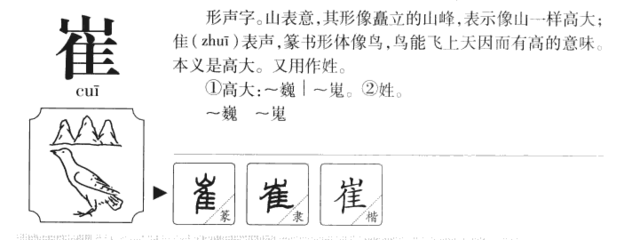 崔
cuī
形声字。山表意,其形像矗立的山峰,表示像山一样高大;
隹(zhuī)表声,篆书形体像鸟,鸟能飞上天因而有高的意味。
本义是高大。又用作姓。
①高大:～巍｜～嵬。②姓。
～巍　～嵬
崔 篆 崔 隶 崔 楷